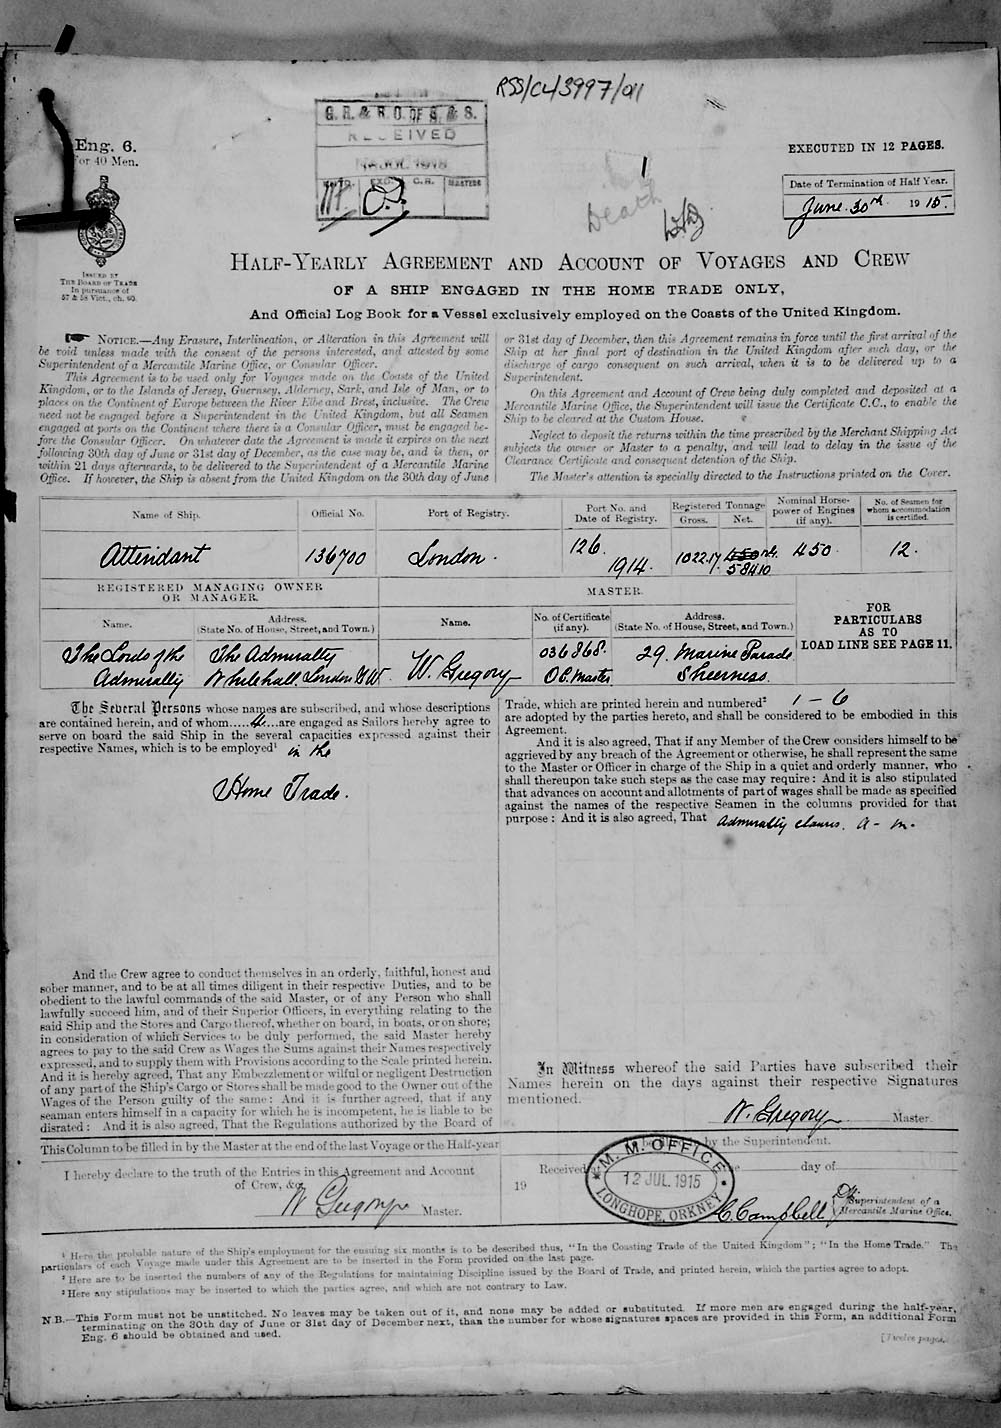 RSS/CL/3997/011
G. R. & R. O. OF S. & S.
RECEIVED
C.R. MASTERS
Eng. 6.
For 40 Men.
EXECUTED IN 12 PAGES.
1
Death
Date of Termination of Half Year.
June 30th 1915.
ISSUED BY
THE BOARD OF TRADE
In pursuance of
57 & 58 Vict., ch. 60.
HALF-YEARLY AGREEMENT AND ACCOUNT OF VOYAGES AND CREW
OF A SHIP ENGAGED IN THE HOME TRADE ONLY,
And Official Log Book for a Vessel exclusively employed on the Coasts of the United Kingdom.
NOTICE.—Any Erasure, Interlineation, or Alteration in this Agreement will
be void unless made with the consent of the persons interested, and attested by some
Superintendent of a Mercantile Marine Office, or Consular Officer.
This Agreement is to be used only for Voyages made on the Coasts of the United
Kingdom, or to the Islands of Jersey, Guernsey, Alderney, Sark, and Isle of Man, or to
places on the Continent of Europe between the River Elbe and Brest, inclusive. The Crew
need not be engaged before a Superintendent in the United Kingdom, but all Seamen
engaged at ports on the Continent where there is a Consular Officer, must be engaged be-
fore the Consular Officer. On whatever date the Agreement is made it expires on the next
following 30th day of June or 31st day of December, as the case may be, and is then, or
within 21 days afterwards, to be delivered to the Superintendent of a Mercantile Marine
Office. If however, the Ship is absent from the United Kingdom on the 30th day of June
or 31st day of December, then this Agreement remains in force until the first arrival of the
Ship at her final port of destination in the United Kingdom after such day, or the
discharge of cargo consequent on such arrival, when it is to be delivered up to a
Superintendent.
On this Agreement and Account of Crew being duly completed and deposited at a
Mercantile Marine Office, the Superintendent will issue the Certificate C.C., to enable the
Ship to be cleared at the Custom House.
Neglect to deposit the returns within the time prescribed by the Merchant Shipping Act
subjects the owner or Master to a penalty, and will lead to delay in the issue of the
Clearance Certificate and consequent detention of the Ship.
The Master's attention is specially directed to the Instructions printed on the Cover.
Name of Ship. Official No. Port of Registry. Port No. and Date of Registry. Registered Tonnage Gross. Net. Nominal Horse-power of Engines (if any). No. of Seamen for whom accommodation is certified.
Attendant 136700 London. 126. 1914. 1022.17. 584.10 450. 12.
REGISTERED MANAGING OWNER
OR MANAGER.
MASTER.
Name. Address. (State No. of House, Street, and Town.) Name. No. of Certificate (if any). Address. (State No. of House, Street, and Town.)
FOR
PARTICULARS
AS TO
LOAD LINE SEE PAGE 11.
The Lords of the The Admiralty W. Gregory 036868. 29. Marine Parade
Admiralty Whitehall. London S.W. O.C. Master Sheerness.
The Several Persons whose names are subscribed, and whose descriptions
are contained herein, and of whom.....4...are engaged as Sailors hereby agree to
serve on board the said Ship in the several capacities expressed against their
respective Names, which is to be employed¹ in the
Home Trade.
And the Crew agree to conduct themselves in an orderly, faithful, honest and
sober manner, and to be at all times diligent in their respective Duties, and to be
obedient to the lawful commands of the said Master, or of any Person who shall
lawfully succeed him, and of their Superior Officers, in everything relating to the
said Ship and the Stores and Cargo thereof, whether on board, in boats, or on shore;
in consideration of which Services to be duly performed, the said Master hereby
agrees to pay to the said Crew as Wages the Sums against their Names respectively
expressed, and to supply them with Provisions according to the Scale printed herein.
And it is hereby agreed, That any Embezzlement or wilful or negligent Destruction
of any part of the Ship's Cargo or Stores shall be made good to the Owner out of the
Wages of the Person guilty of the same: And it is further agreed, that if any
seaman enters himself in a capacity for which he is incompetent, he is liable to be
disrated: And it is also agreed, That the Regulations authorized by the Board of
Trade, which are printed herein and numbered² 1 - 6
are adopted by the parties hereto, and shall be considered to be embodied in this
Agreement.
And it is also agreed, That if any Member of the Crew considers himself to be
aggrieved by any breach of the Agreement or otherwise, he shall represent the same
to the Master or Officer in charge of the Ship in a quiet and orderly manner, who
shall thereupon take such steps as the case may require: And it is also stipulated
that advances on account and allotments of part of wages shall be made as specified
against the names of the respective Seamen in the columns provided for that
purpose: And it is also agreed, That Admiralty clauses. a - m.
In Witness whereof the said Parties have subscribed their
Names herein on the days against their respective Signatures
mentioned.
W. Gregory Master.
This Column to be filled in by the Master at the end of the last Voyage or the Half-year
I hereby declare to the truth of the Entries in this Agreement and Account
of Crew, &c.
W Gregory Master.
by the Superintendent.
Received
day of
19
M. M. OFFICE
12 JUL 1915
LONGHOPE, ORKNEY
C. Campbell
Superintendent of a
Mercantile Marine Office.
¹ Here the probable nature of the Ship's employment for the ensuing six months is to be described thus, "In the Coasting Trade of the United Kingdom"; "In the Home Trade." The
particulars of each Voyage made under this Agreement are to be inserted in the Form provided on the last page.
² Here are to be inserted the numbers of any of the Regulations for maintaining Discipline issued by the Board of Trade, and printed herein, which the parties agree to adopt.
³ Here any stipulations may be inserted to which the parties agree, and which are not contrary to Law.
N.B.—This Form must not be unstitched. No leaves may be taken out of it, and none may be added or substituted. If more men are engaged during the half-year,
terminating on the 30th day of June or 31st day of December next, than the number for whose signatures spaces are provided in this Form, an additional Form
Eng. 6 should be obtained and used.
[Twelve pages.